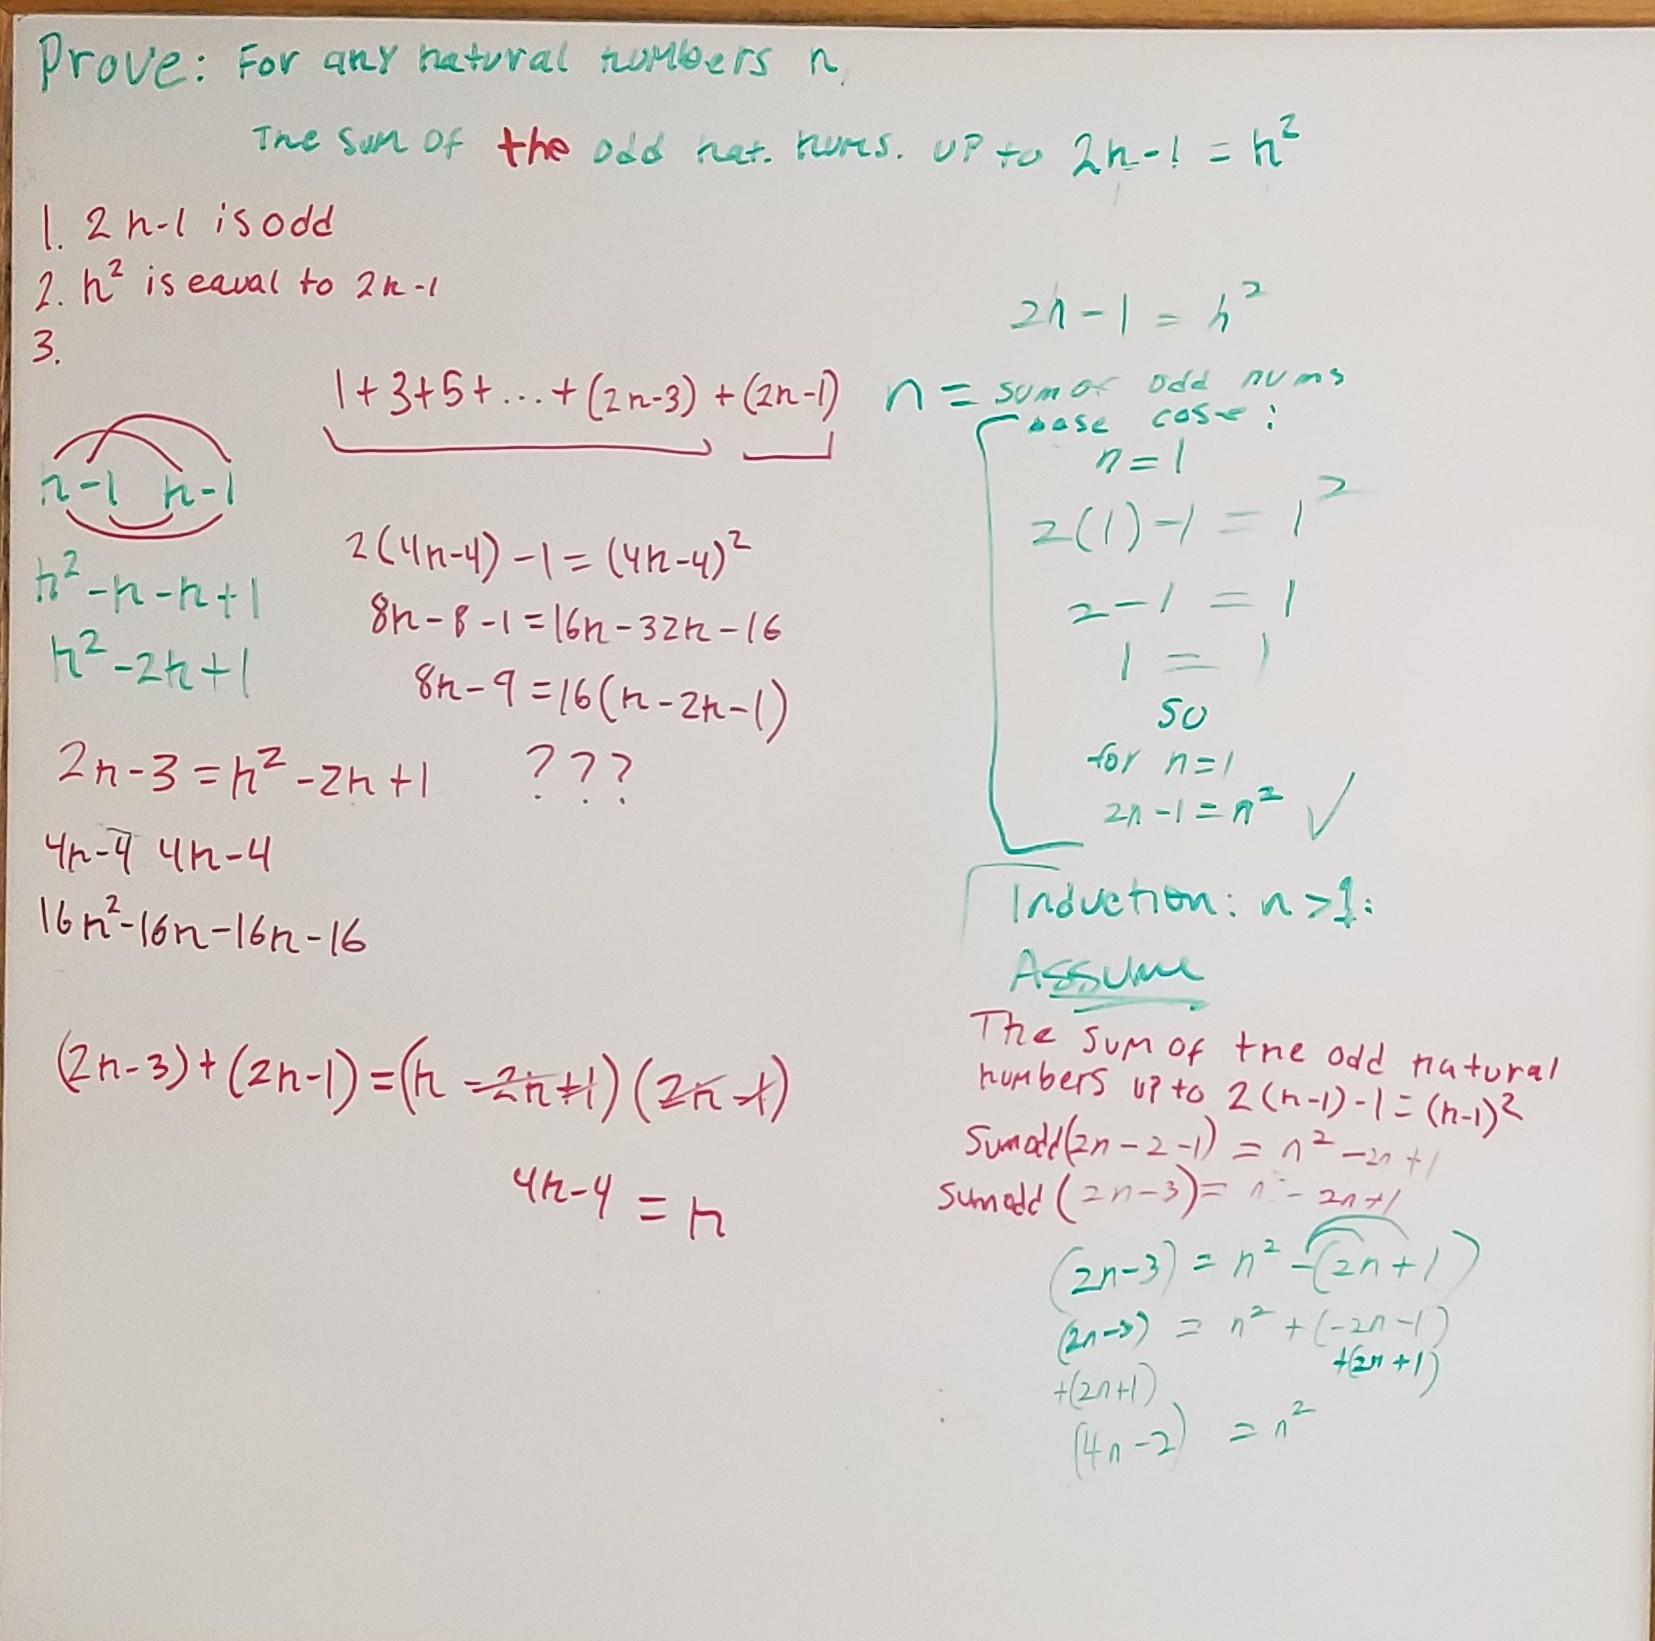 Prove: For any natural numbers n,
The sum of the odd nat. nums. up to 2n-1 = n²
1. 2n-1 is odd
2. n² is equal to 2n-1
3.
1+3+5+...+(2n-3)+(2n-1)
n-1 n-1
n²-n-n+1
n²-2n+1
2(4n-4)-1=(4n-4)²
8n-8-1=16n-32n-16
8n-9=16(n-2n-1)
2n-3=n²-2n+1 ???
4n-4 4n-4
16n²-16n-16n-16
(2n-3)+(2n-1)=(n-2n+1)(2n-1)
4n-4=n
2n-1=n²
n = sum of odd nums
base case:
n=1
2(1)-1=1²
2-1=1
1=1
so
for n=1
2n-1=n² ✓
Induction: n>1:
Assume
The sum of the odd natural
numbers up to 2(n-1)-1=(n-1)²
Sumodd(2n-2-1)=n²-2n+1
Sumodd(2n-3)=n²-2n+1
(2n-3)=n²-(2n+1)
(2n-3)=n²+(-2n-1)
+(2n+1) +(2n+1)
(4n-2)=n²